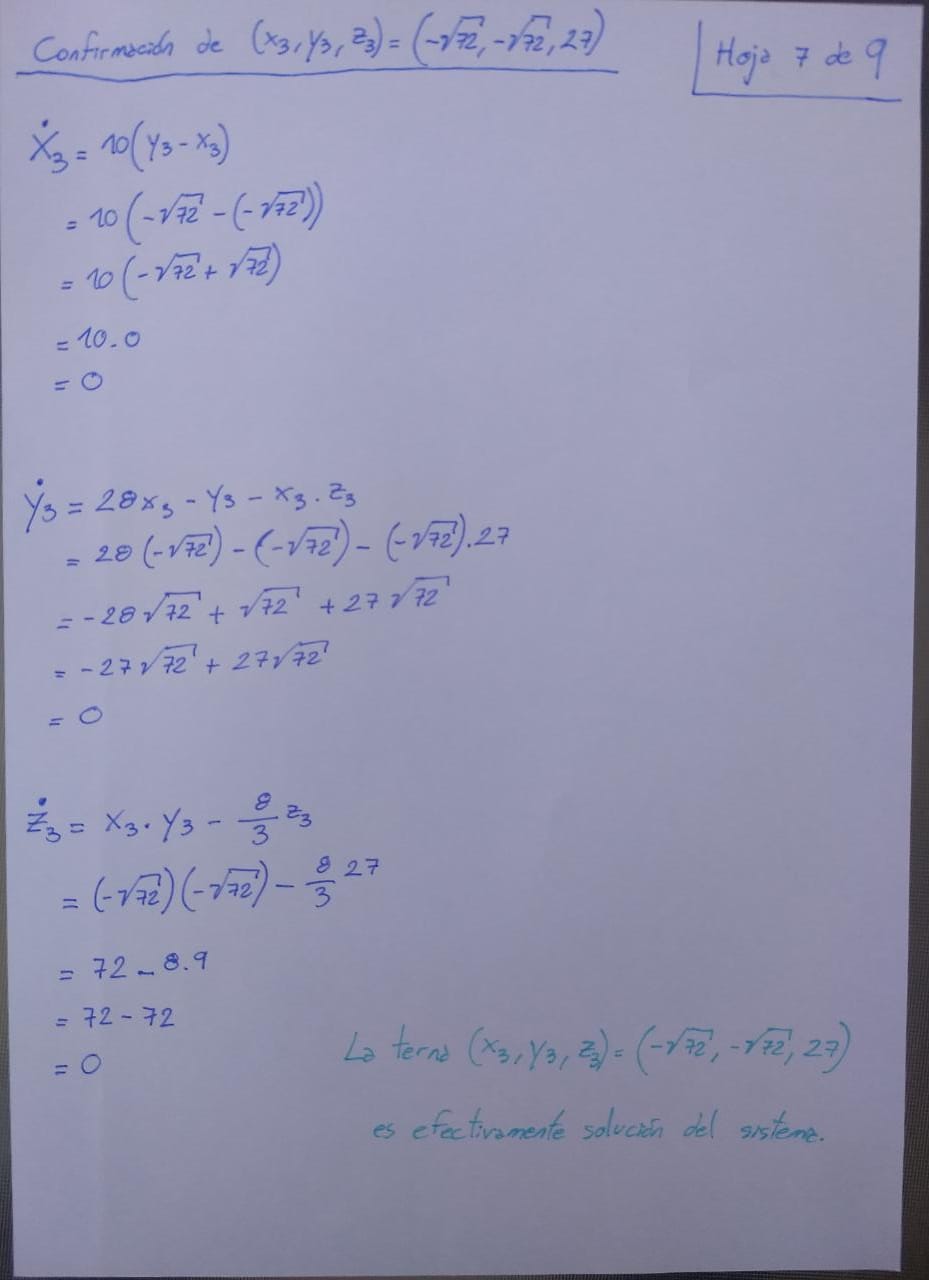 Confirmación de (x₃, y₃, z₃) = (-√72, -√72, 27)
Hoja 7 de 9
ẋ₃ = 10(y₃ - x₃)
= 10(-√72 - (-√72))
= 10(-√72 + √72)
= 10.0
= 0
ẏ₃ = 28x₃ - y₃ - x₃.z₃
= 28(-√72) - (-√72) - (-√72).27
= -28√72 + √72 + 27√72
= -27√72 + 27√72
= 0
ż₃ = x₃.y₃ - 8/3 z₃
= (-√72)(-√72) - 8/3 27
= 72 - 8.9
= 72 - 72
= 0
La terna (x₃, y₃, z₃) = (-√72, -√72, 27)
es efectivamente solución del sistema.